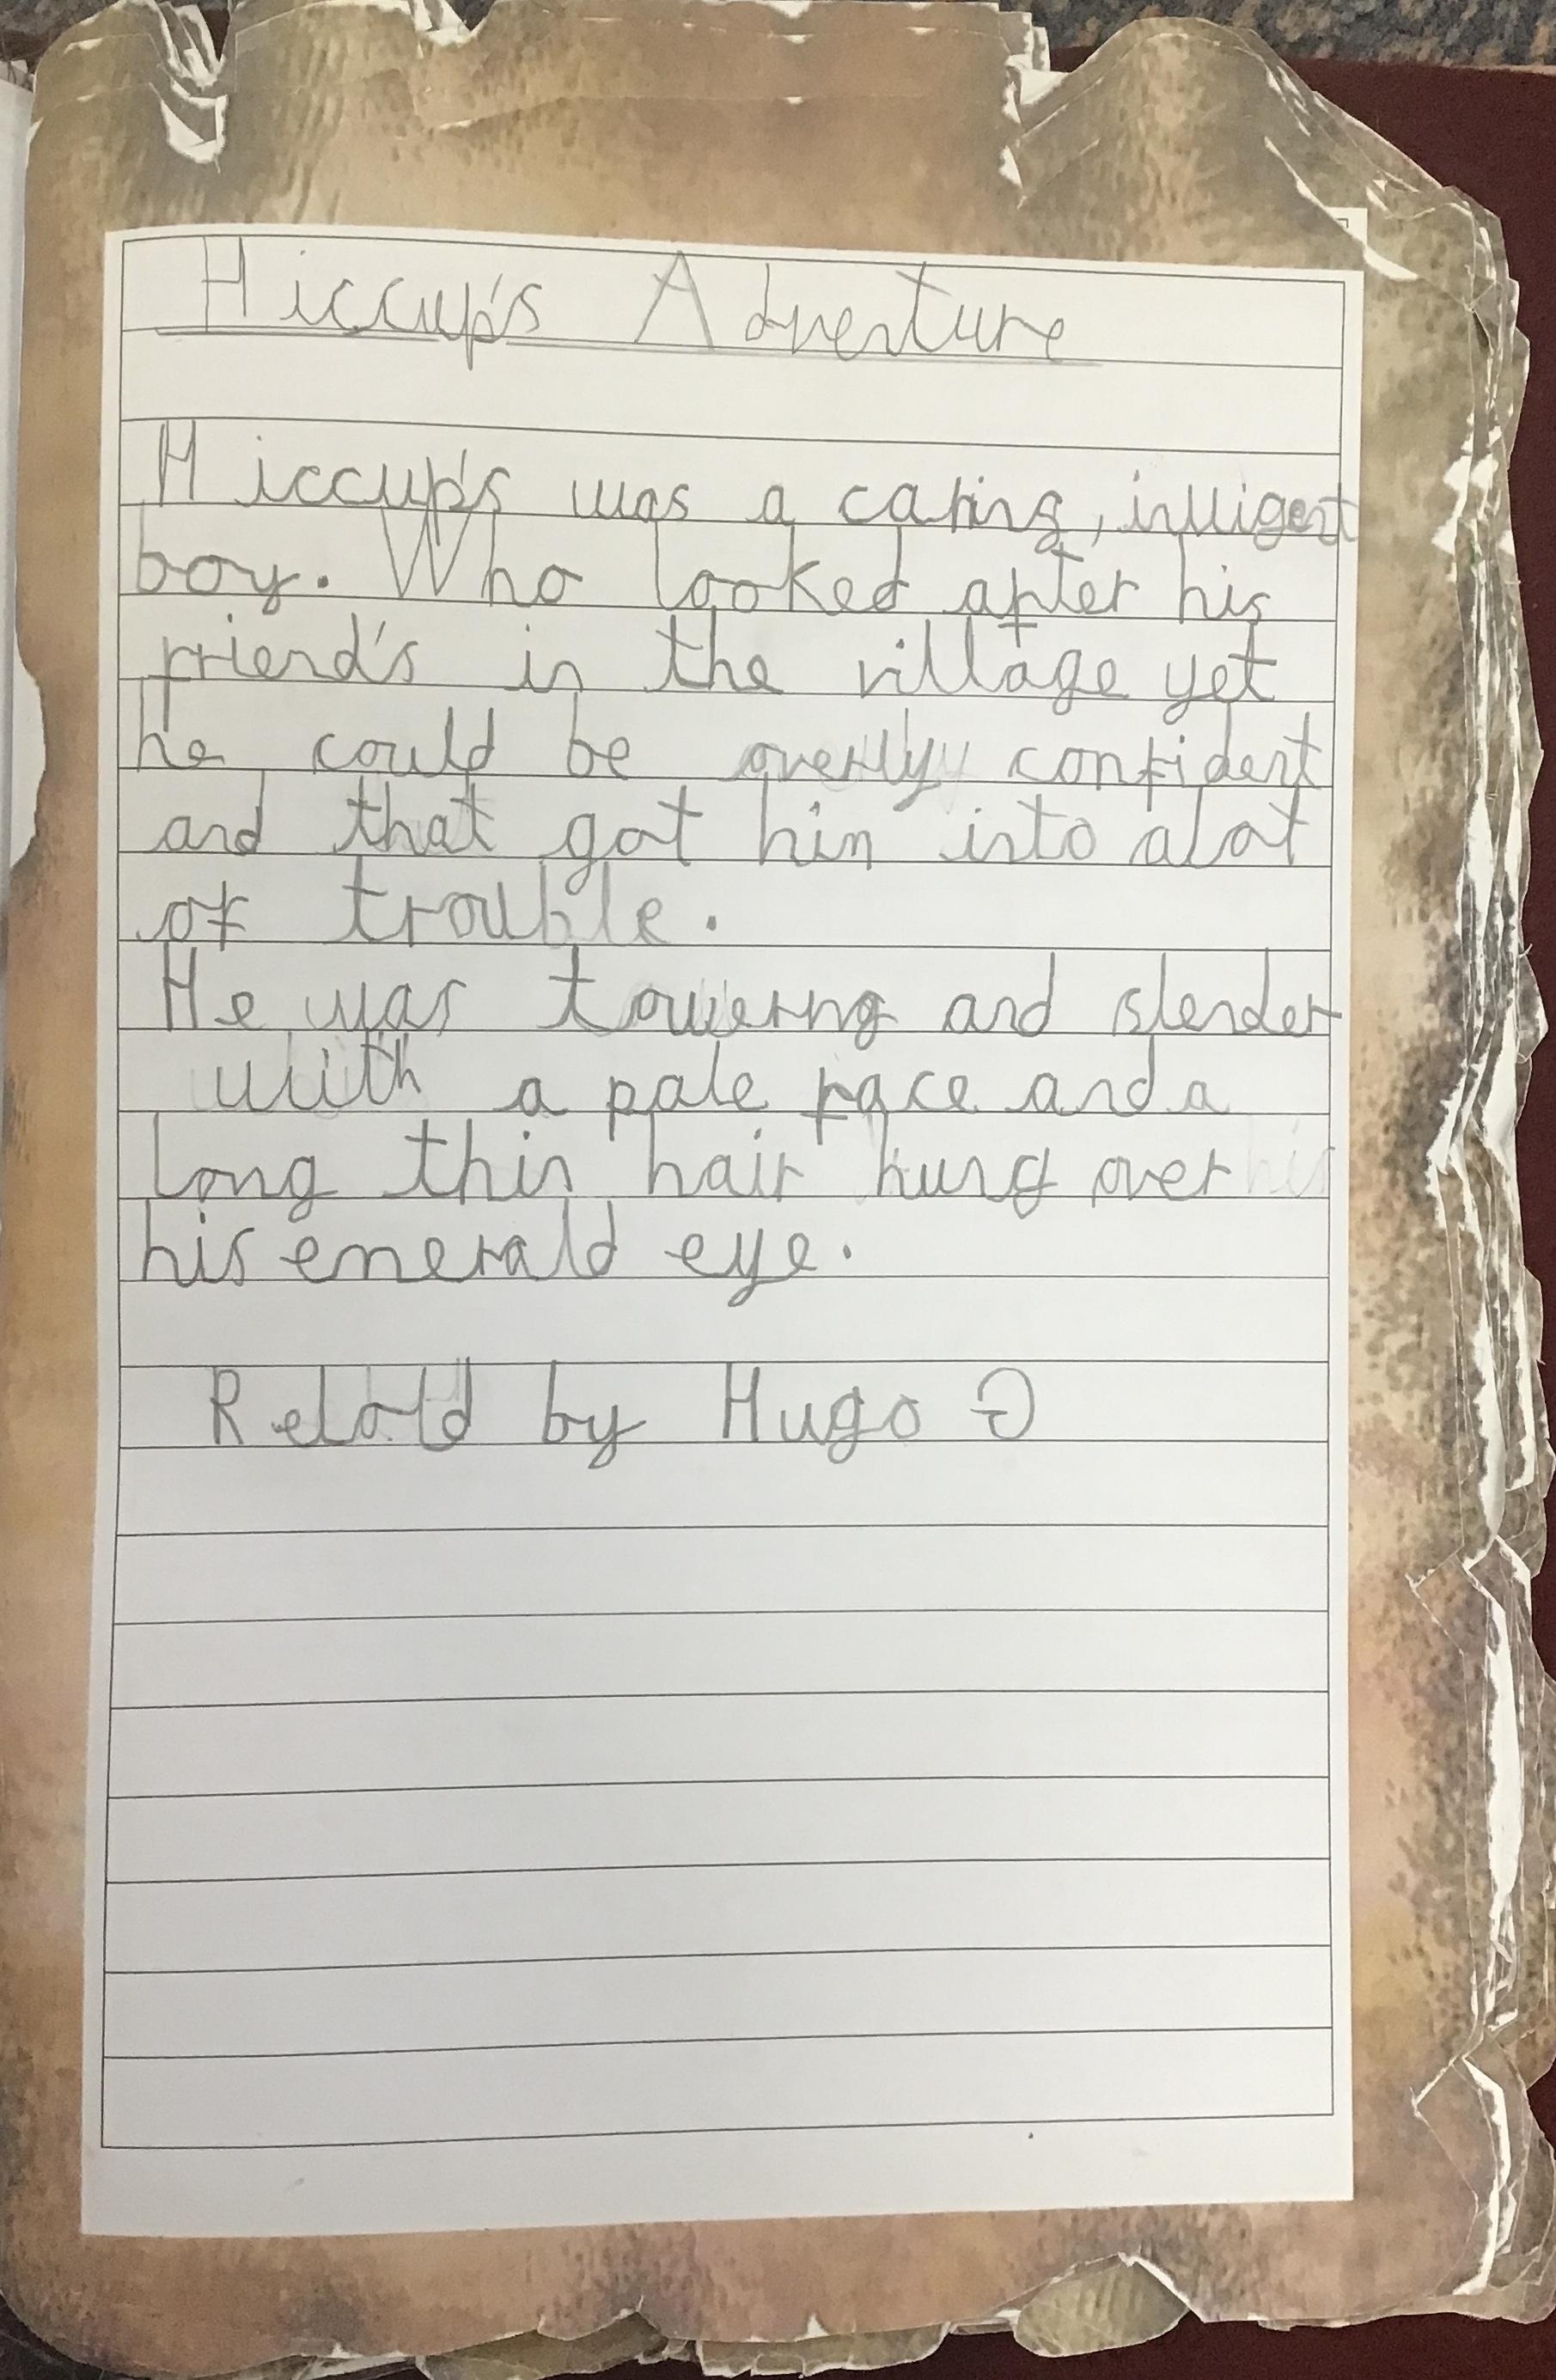 Hiccup's Adventure
Hiccup's was a caring, intlligent
boy. Who looked after his
friend's in the village yet
he could be overlly confident
and that got him into alot
of trouble.
He was towerng and slender
with a pale face and a
long thin hair hung over
his emerald eye.
Retold by Hugo G